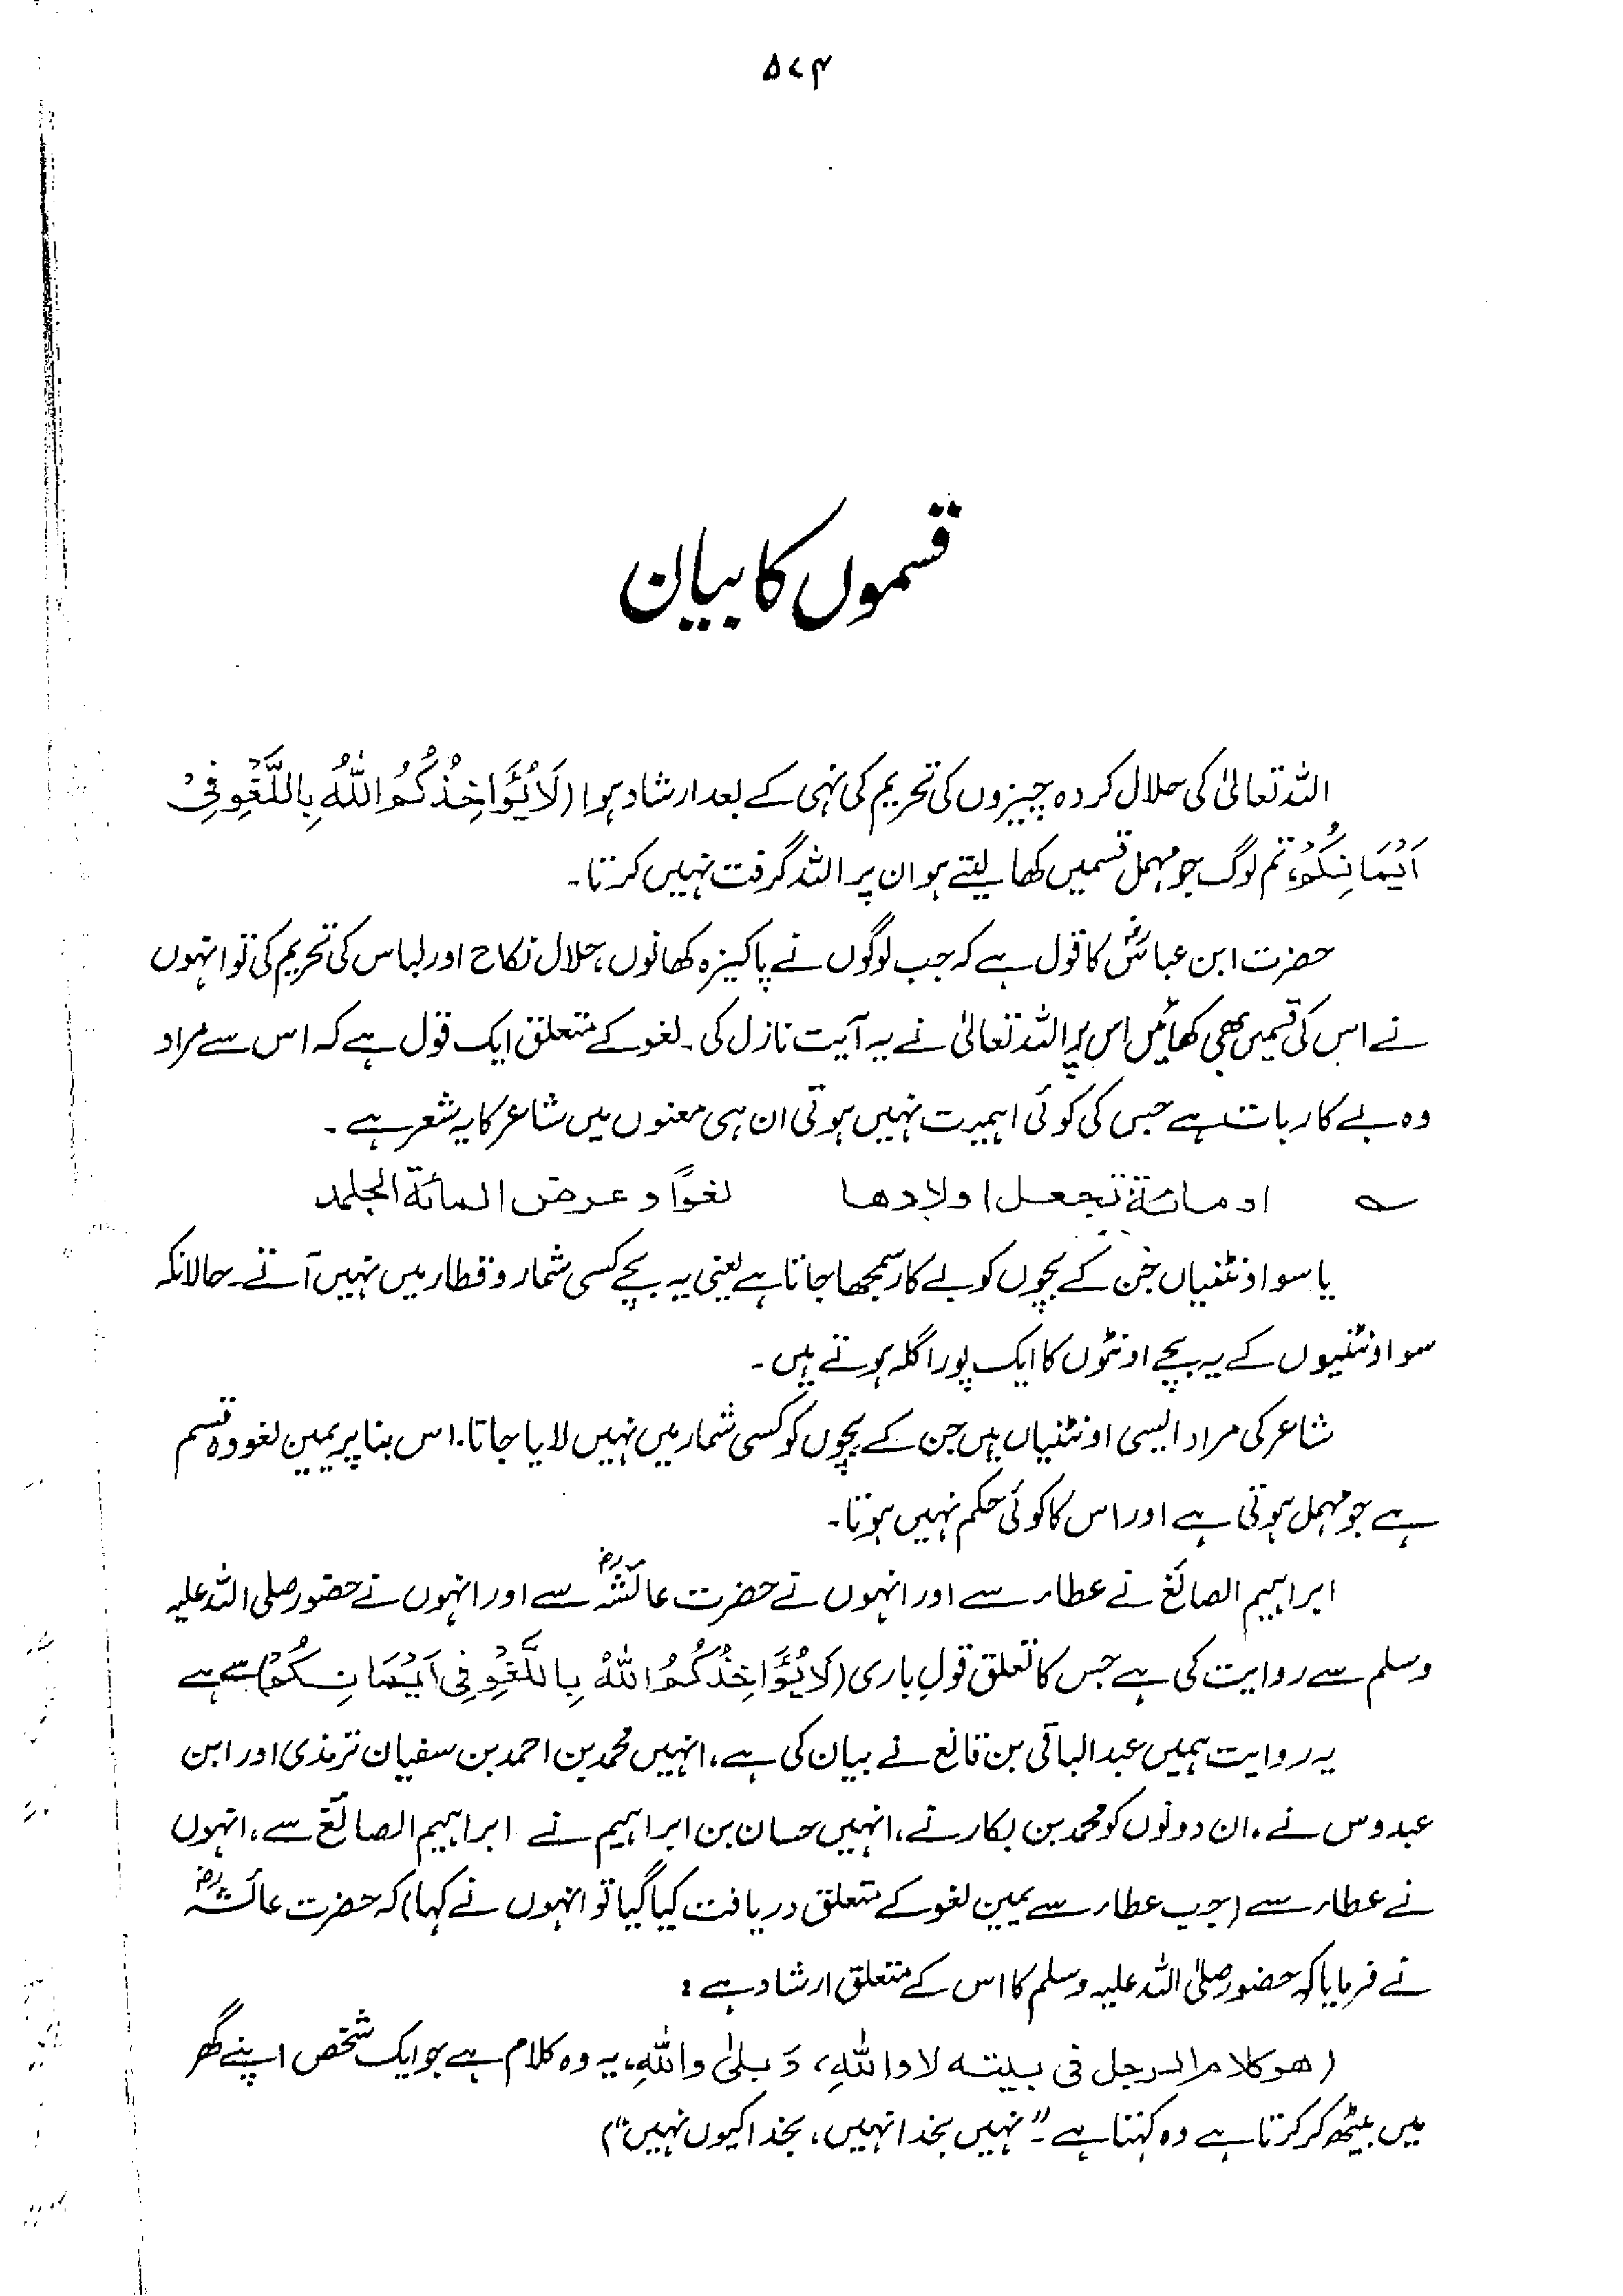 ۵۷۴
قسموں کا بیان
اللہ تعالیٰ کی حلال کردہ چیزوں کی تحریم کی نہی کے بعد ارشاد ہوا (لَا یُؤَاخِذُکُمُ اللّٰہُ بِاللَّغْوِ فِیْ
اَیْمَانِکُمْ، تم لوگ جو مہمل قسمیں کھا لیتے ہو ان پر اللہ گرفت نہیں کرتا۔
حضرت ابن عباسؓ کا قول ہے کہ جب لوگوں نے پاکیزہ کھانوں، حلال نکاح اور لباس کی تحریم کی تو انہوں
نے اس کی قسمیں بھی کھائیں اس پر اللہ تعالیٰ نے یہ آیت نازل کی۔ لغو کے متعلق ایک قول ہے کہ اس سے مراد
وہ بے کار بات ہے جس کی کوئی اہمیت نہیں ہوتی ان ہی معنوں میں شاعر کا یہ شعر ہے۔
؎ او مائة تجعل اولادها لغوًا وعرض المائة الجلمد
یا سو اونٹنیاں جن کے بچوں کو بے کار سمجھا جاتا ہے یعنی یہ بچے کسی شمار و قطار میں نہیں آتے۔ حالانکہ
سو اونٹنیوں کے یہ بچے اونٹوں کا ایک پورا گلہ ہوتے ہیں۔
شاعر کی مراد ایسی اونٹنیاں ہیں جن کے بچوں کو کسی شمار میں نہیں لایا جاتا۔ اس بنا پر یمین لغو وہ قسم
ہے جو مہمل ہوتی ہے اور اس کا کوئی حکم نہیں ہوتا۔
ابراہیم الصائغ نے عطار سے اور انہوں نے حضرت عائشہؓ سے اور انہوں نے حضور صلی اللہ علیہ
وسلم سے روایت کی ہے جس کا تعلق قولِ باری (لَا یُؤَاخِذُکُمُ اللّٰہُ بِاللَّغْوِ فِی اَیْمَانِکُمْ) سے ہے
یہ روایت ہمیں عبدالباقی بن قانع نے بیان کی ہے، انہیں محمد بن احمد بن سفیان ترمذی اور ابن
عبدوس نے، ان دونوں کو محمد بن بکار نے، انہیں حسان بن ابراہیم نے ابراہیم الصائغ سے، انہوں
نے عطار سے (جب عطار سے یمین لغو کے متعلق دریافت کیا گیا تو انہوں نے کہا) کہ حضرت عائشہؓ
نے فرمایا کہ حضور صلی اللہ علیہ وسلم کا اس کے متعلق ارشاد ہے:
(هو كلام الرجل فی بیته لا واللہِ، وَ بلیٰ واللہِ، یہ وہ کلام ہے جو ایک شخص اپنے گھر
میں بیٹھ کر کرتا ہے وہ کہتا ہے۔ "نہیں بخدا نہیں، بخدا کیوں نہیں")